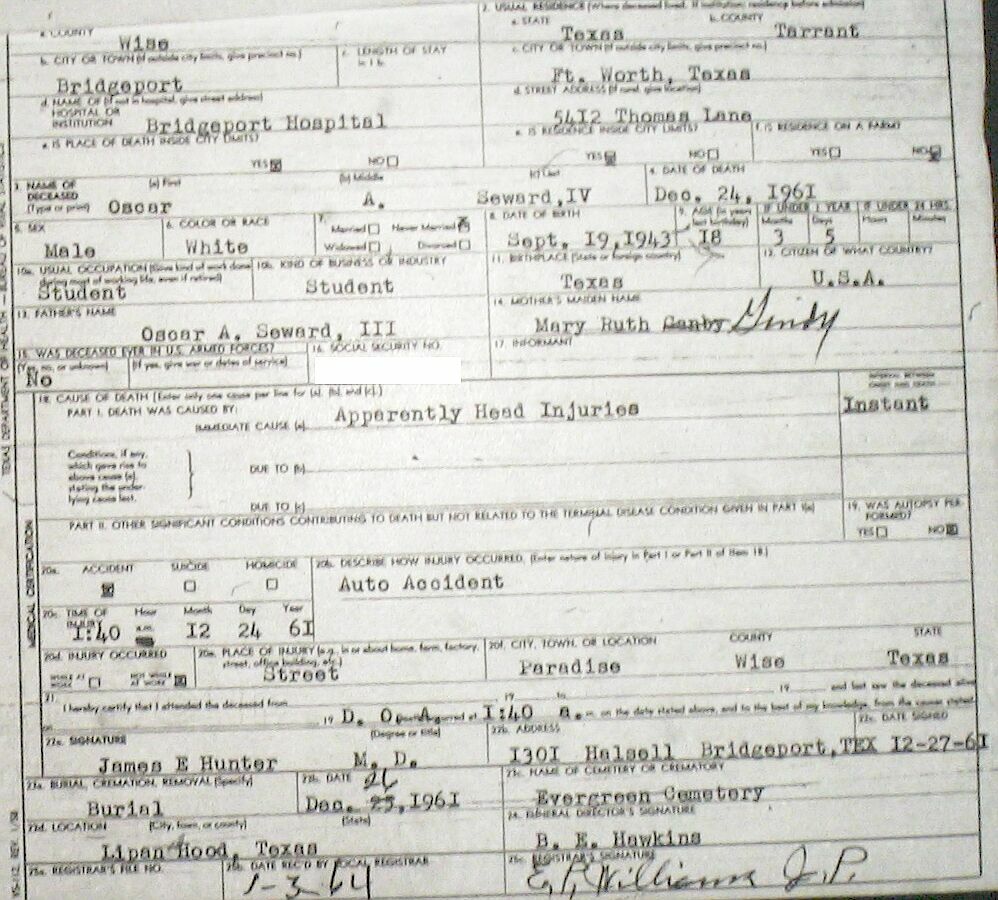 2. USUAL RESIDENCE (Where deceased lived. If institution: residence before admission)
a. COUNTY Wise a. STATE Texas b. COUNTY Tarrant
b. CITY OR TOWN (If outside city limits, give precinct no.) Bridgeport c. LENGTH OF STAY in 1 b. c. CITY OR TOWN (If outside city limits, give precinct no.) Ft. Worth, Texas
d. NAME OF (If not in hospital, give street address) HOSPITAL OR INSTITUTION Bridgeport Hospital d. STREET ADDRESS (If rural, give location) 5412 Thomas Lane
e. IS PLACE OF DEATH INSIDE CITY LIMITS? YES NO e. IS RESIDENCE INSIDE CITY LIMITS? YES NO f. IS RESIDENCE ON A FARM? YES NO
3. NAME OF DECEASED (Type or print) (a) First Oscar (b) Middle A. (c) Last Seward, IV 4. DATE OF DEATH Dec. 24, 1961
5. SEX Male 6. COLOR OR RACE White 7. Married Never Married Widowed Divorced 8. DATE OF BIRTH Sept. 19, 1943 9. AGE (In years last birthday) 18 IF UNDER 1 YEAR Months 3 Days 5 IF UNDER 24 HRS. Hours Minutes
10a. USUAL OCCUPATION (Give kind of work done during most of working life, even if retired) Student 10b. KIND OF BUSINESS OR INDUSTRY Student 11. BIRTHPLACE (State or foreign country) Texas 12. CITIZEN OF WHAT COUNTRY? U.S.A.
13. FATHER'S NAME Oscar A. Seward, III 14. MOTHER'S MAIDEN NAME Mary Ruth
15. WAS DECEASED EVER IN U.S. ARMED FORCES? (Yes, no, or unknown) No (If yes, give war or dates of service) 16. SOCIAL SECURITY NO. 17. INFORMANT
18. CAUSE OF DEATH [Enter only one cause per line for (a), (b), and (c).] INTERVAL BETWEEN ONSET AND DEATH
PART I. DEATH WAS CAUSED BY: IMMEDIATE CAUSE (a) Apparently Head Injuries Instant
Conditions, if any, which gave rise to above cause (a), stating the underlying cause last. DUE TO (b)
DUE TO (c)
PART II. OTHER SIGNIFICANT CONDITIONS CONTRIBUTING TO DEATH BUT NOT RELATED TO THE TERMINAL DISEASE CONDITION GIVEN IN PART I(a) 19. WAS AUTOPSY PERFORMED? YES NO
20a. ACCIDENT SUICIDE HOMICIDE 20b. DESCRIBE HOW INJURY OCCURRED. (Enter nature of injury in Part I or Part II of item 18.) Auto Accident
20c. TIME OF INJURY Hour 1:40 Month 12 Day 24 Year 61
20d. INJURY OCCURRED WHILE AT WORK NOT WHILE AT WORK 20e. PLACE OF INJURY (e.g., in or about home, farm, factory, street, office building, etc.) Street 20f. CITY, TOWN, OR LOCATION Paradise COUNTY Wise STATE Texas
21. I hereby certify that I attended the deceased from 19 to 19 and last saw the deceased alive
on 19 D. O. A. occurred at 1:40 a. m. on the date stated above, and to the best of my knowledge, from the causes stated.
22a. SIGNATURE James E Hunter (Degree or title) M. D. 22b. ADDRESS 1301 Halsell Bridgeport, TEX 22c. DATE SIGNED 12-27-61
23a. BURIAL, CREMATION, REMOVAL (Specify) Burial 23b. DATE Dec. 25, 26 1961 23c. NAME OF CEMETERY OR CREMATORY Evergreen Cemetery
23d. LOCATION (City, town, or county) (State) Lipan Hood, Texas 24. FUNERAL DIRECTOR'S SIGNATURE B. E. Hawkins
25a. REGISTRAR'S FILE NO. 25b. DATE REC'D BY LOCAL REGISTRAR 25c. REGISTRAR'S SIGNATURE Williams J.P.
MEDICAL CERTIFICATION